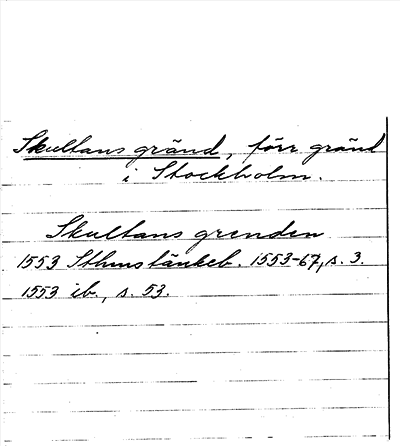 Skultans gränd, förr gränd
i Stockholm.
Skultans grenden
1553 Sthms tänkeb. 1553-67, s. 3.
1553 ib., s. 53.